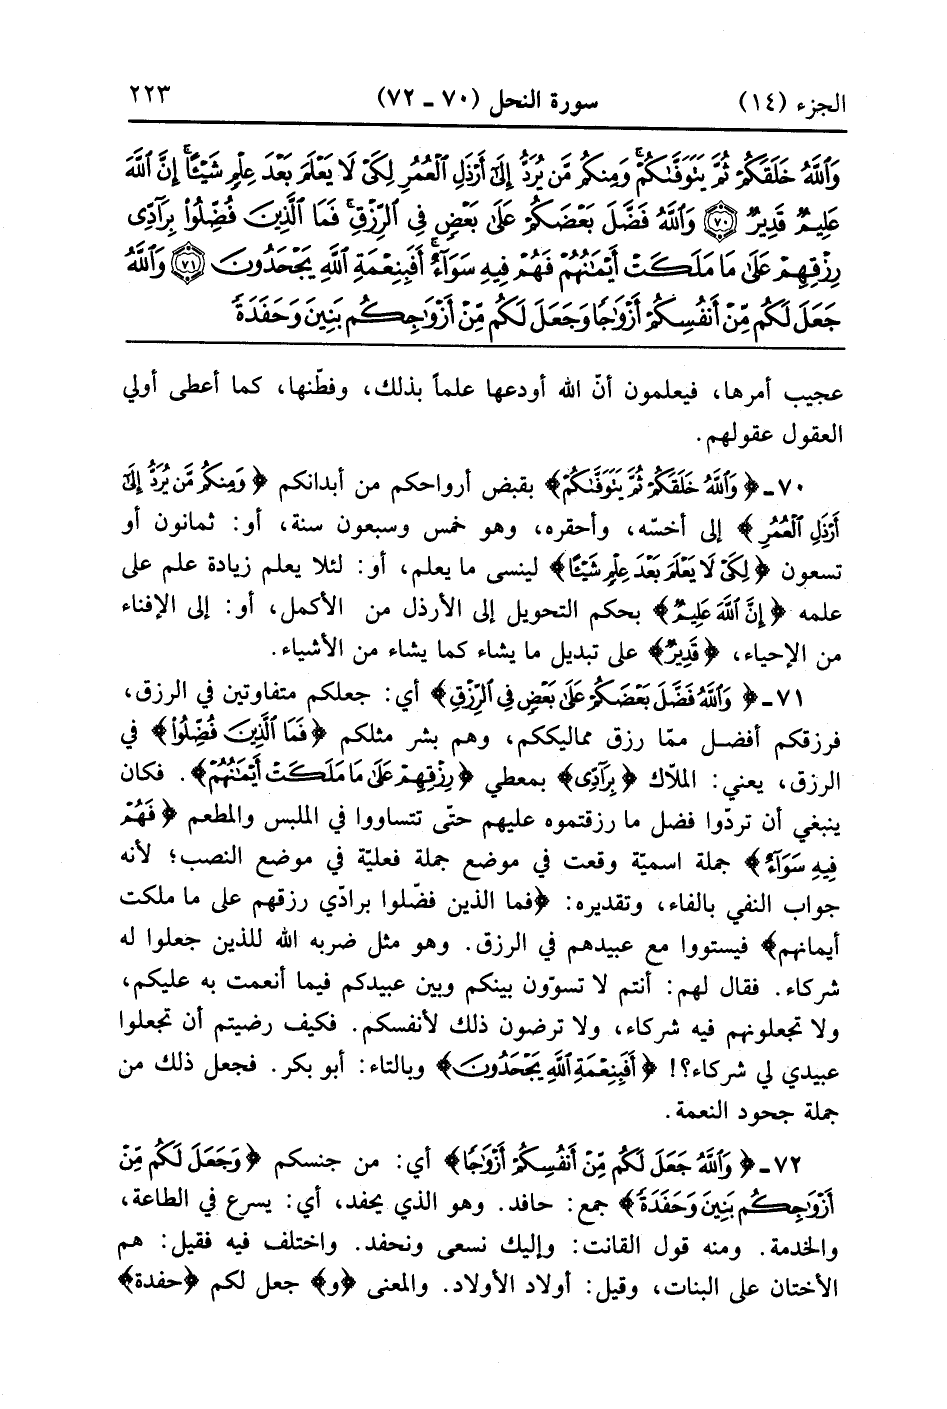 الجزء (١٤) سورة النحل (٧٠ ـ ٧٢) ٢٢٣
وَٱللَّهُ خَلَقَكُمْ ثُمَّ يَتَوَفَّىٰكُمْ ۚ وَمِنكُم مَّن يُرَدُّ إِلَىٰٓ أَرْذَلِ ٱلْعُمُرِ لِكَىْ لَا يَعْلَمَ بَعْدَ عِلْمٍ شَيْـًٔا ۚ إِنَّ ٱللَّهَ
عَلِيمٌ قَدِيرٌ ﴿٧٠﴾ وَٱللَّهُ فَضَّلَ بَعْضَكُمْ عَلَىٰ بَعْضٍ فِى ٱلرِّزْقِ ۚ فَمَا ٱلَّذِينَ فُضِّلُوا۟ بِرَآدِّى
رِزْقِهِمْ عَلَىٰ مَا مَلَكَتْ أَيْمَـٰنُهُمْ فَهُمْ فِيهِ سَوَآءٌ ۚ أَفَبِنِعْمَةِ ٱللَّهِ يَجْحَدُونَ ﴿٧١﴾ وَٱللَّهُ
جَعَلَ لَكُم مِّنْ أَنفُسِكُمْ أَزْوَٰجًا وَجَعَلَ لَكُم مِّنْ أَزْوَٰجِكُم بَنِينَ وَحَفَدَةً
عجيب أمرها، فيعلمون أنّ الله أودعها علماً بذلك، وفطّنها، كما أعطى أولي
العقول عقولهم.
٧٠ـ ﴿وَٱللَّهُ خَلَقَكُمْ ثُمَّ يَتَوَفَّىٰكُمْ﴾ بقبض أرواحكم من أبدانكم ﴿وَمِنكُم مَّن يُرَدُّ إِلَىٰٓ
أَرْذَلِ ٱلْعُمُرِ﴾ إلى أخسّه، وأحقره، وهو خمس وسبعون سنة، أو: ثمانون أو
تسعون ﴿لِكَىْ لَا يَعْلَمَ بَعْدَ عِلْمٍ شَيْـًٔا﴾ لينسى ما يعلم، أو: لئلا يعلم زيادة علم على
علمه ﴿إِنَّ ٱللَّهَ عَلِيمٌ﴾ بحكم التحويل إلى الأرذل من الأكمل، أو: إلى الإفناء
من الإحياء، ﴿قَدِيرٌ﴾ على تبديل ما يشاء كما يشاء من الأشياء.
٧١ـ ﴿وَٱللَّهُ فَضَّلَ بَعْضَكُمْ عَلَىٰ بَعْضٍ فِى ٱلرِّزْقِ﴾ أي: جعلكم متفاوتين في الرزق،
فرزقكم أفضل ممّا رزق مماليككم، وهم بشر مثلكم ﴿فَمَا ٱلَّذِينَ فُضِّلُوا۟﴾ في
الرزق، يعني: الملاّك ﴿بِرَآدِّى﴾ بمعطي ﴿رِزْقِهِمْ عَلَىٰ مَا مَلَكَتْ أَيْمَـٰنُهُمْ﴾. فكان
ينبغي أن تردّوا فضل ما رزقتموه عليهم حتّى تتساووا في الملبس والمطعم ﴿فَهُمْ
فِيهِ سَوَآءٌ﴾ جملة اسميّة وقعت في موضع جملة فعليّة في موضع النصب؛ لأنه
جواب النفي بالفاء، وتقديره: ﴿فما الذين فضّلوا برادّي رزقهم على ما ملكت
أيمانهم﴾ فيستووا مع عبيدهم في الرزق. وهو مثل ضربه الله للذين جعلوا له
شركاء. فقال لهم: أنتم لا تسوّون بينكم وبين عبيدكم فيما أنعمت به عليكم،
ولا تجعلونهم فيه شركاء، ولا ترضون ذلك لأنفسكم. فكيف رضيتم أن تجعلوا
عبيدي لي شركاء؟! ﴿أَفَبِنِعْمَةِ ٱللَّهِ يَجْحَدُونَ﴾ وبالتاء: أبو بكر. فجعل ذلك من
جملة جحود النعمة.
٧٢ـ ﴿وَٱللَّهُ جَعَلَ لَكُم مِّنْ أَنفُسِكُمْ أَزْوَٰجًا﴾ أي: من جنسكم ﴿وَجَعَلَ لَكُم مِّنْ
أَزْوَٰجِكُم بَنِينَ وَحَفَدَةً﴾ جمع: حافد. وهو الذي يحفد، أي: يسرع في الطاعة،
والخدمة. ومنه قول القانت: وإليك نسعى ونحفد. واختلف فيه فقيل: هم
الأختان على البنات، وقيل: أولاد الأولاد. والمعنى ﴿و﴾ جعل لكم ﴿حفدة﴾